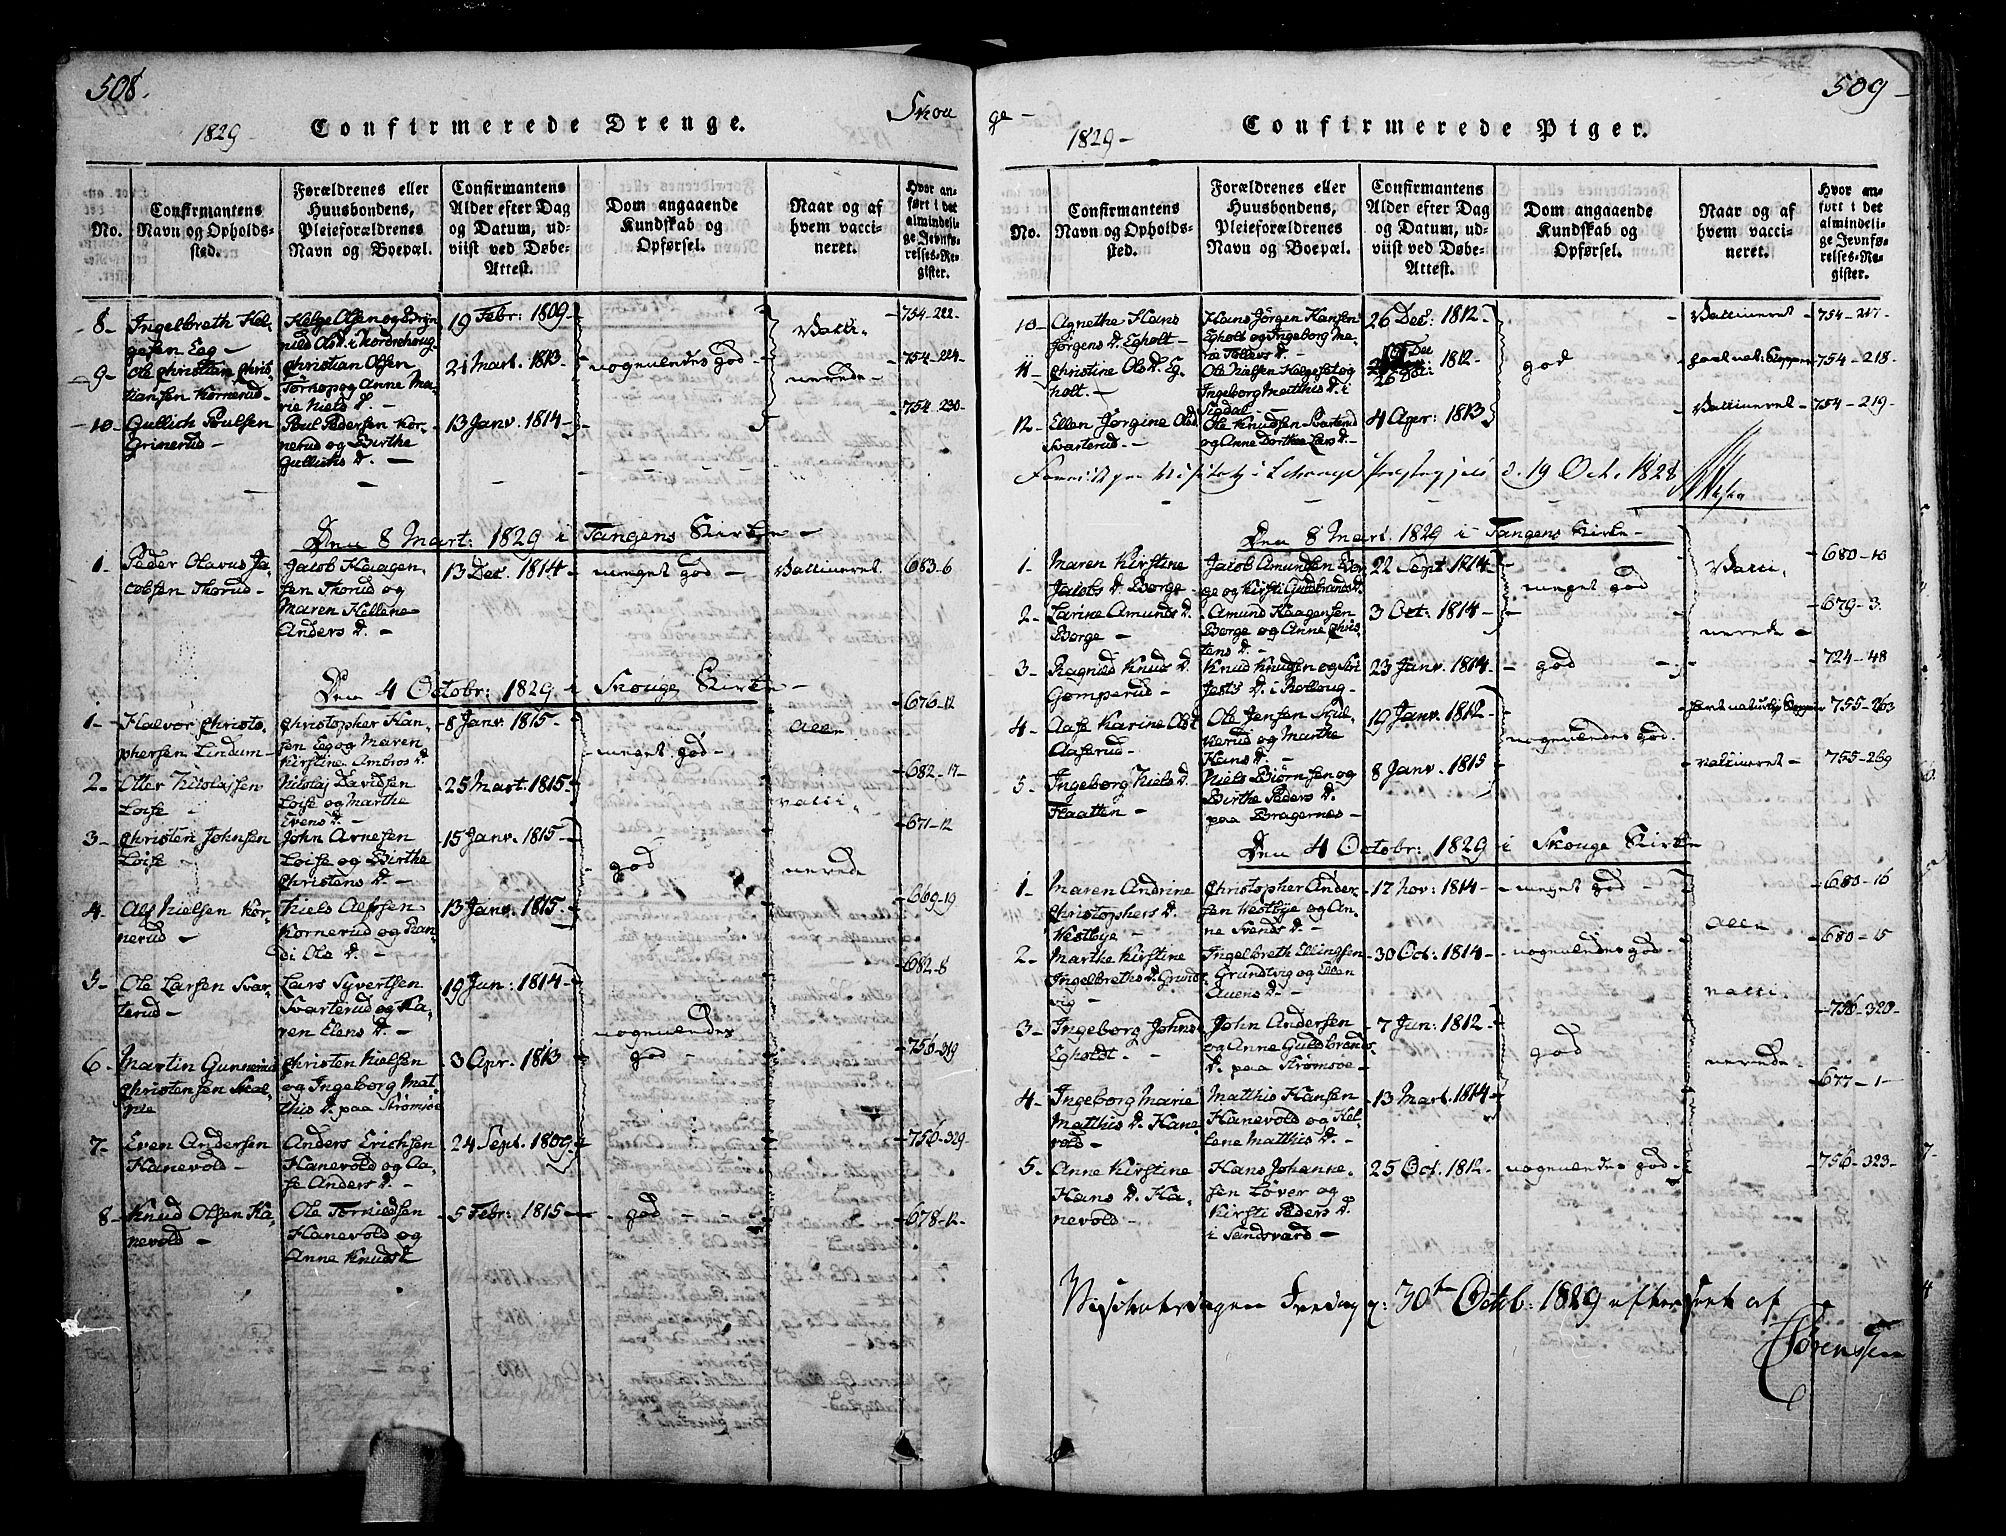 508.
1829 Confirmerede Drenge. Skou
No.
Confirmantens
Navn og Opholds-
sted.
Forældrenes eller
Huusbondens,
Pleieforældrenes
Navn og Boepæl.
Confirmantens
Alder efter Dag
og Datum, ud-
viist ved Døbe-
Attest.
Dom angaaende
Kundskab og
Opførsel.
Naar og af
hvem vacci-
neret.
Hvor an-
ført i det
almindeli-
ge Jevnfø-
relses-Re-
gister.
8- Ingelbreth Hel-
gesen Eeg -
Helge Olsen og
Olsd. i Norderhoug
19 Febr: 1809
754-222-
9- Ole Christian Chris-
tiansen Kornerud
Christian Olsen
Torsop og Anne Ma-
rie Niels D. -
21 Mart. 1813
nogenledes god
Vacci-
nerede -
754-224-
10- Gullich Poulsen
Grinerud
Poul Pedersen Kor-
nerud og Birthe
Gullichs D. -
13 Janv. 1814
754-230-
Den 8 Mart: 1829 i Tangens Kirke -
1- Peder Olavus Ja-
cobsen Thorud -
Jacob Haagen-
sen Thorud og
Maren Hellene
Anders D. -
13 Dec. 1814
meget god -
Vaccineret
683-6
Den 4 Octobr: 1829 i Skouge Kirke -
1- Halvor Christo-
phersen Lindum -
Christopher Han-
sen Eeg og Maren
Kirstine Ambros D.
8 Janv. 1815-
meget god -
Alle
676-12
2- Otter Nicolaisen
Loise -
Nicolaj Davidsen
Loise og Marthe
Evens D. -
25 Mart. 1815
vacci-
682-17-
3- Christen Johnsen
Loise -
John Arnesen
Loise og Birthe
Christens D. -
15 Janv. 1815
god
nerede
671-12
4- Alf Nielsen Kor-
nerud -
Niels Alfsen
Kornerud og Ran-
di Ole D. -
13 Janv. 1815.
669-19
5- Ole Larsen Svar-
terud -
Lars Syvertsen
Svarterud og Ka-
ren Elens D. -
19 Jun: 1814-
nogenledes
god -
682-8
6- Martin Gunnerius
Christensen Skal-
Christen Nielsen
og Ingeborg Mat-
this D. paa Strømsøe
3 Apr. 1813
756-319
7- Even Andersen
Hanevold -
Anders Erichsen
Hanevold og Aa-
se Anders D. -
24 Sept. 1809
756-329
8- Knud Olsen Ha-
nevold -
Ole Tornidsen
Hanevold og
Anne Knuds D
5 Febr: 1815-
god -
678-12-
509-
ge - 1829- Confirmerede Piger.
No.
Confirmantens
Navn og Opholds-
sted.
Forældrenes eller
Huusbondens,
Pleieforældrenes
Navn og Boepæl.
Confirmantens
Alder efter Dag
og Datum, ud-
viist ved Døbe-
Attest.
Dom angaaende
Kundskab og
Opførsel.
Naar og af
hvem vacci-
neret.
Hvor an-
ført i det
almindeli-
ge Jevnfø-
relses-Re-
gister.
10- Agnethe Hans
Jørgens D. Egholt -
Hans Jørgen Hansen
Egholt og Ingeborg Ma-
rie Tollevs D. -
26 Dec: 1812
Vaccineret
754-217-
11- Christine Ols D. Eg-
holt. -
Ole Nielsen Helgeset og
Ingeborg Matthis D. i
Sigdal -
26 Dec: 1812
god
havt nat: Kopper
754-218-
12- Ellen Jørgine Olsd
Svarterud -
Ole Knudsen Svarterud
og Anne Dorthea Lars D. -
4 Apr: 1813
Vaccineret
754-219-
d. 19 Oct. 1828
Den 8 Mart. 1829 i Tangens Kirke -
1- Maren Kirstine
Jacobs D. Borge -
Jacob Amundsen Bor-
ge og Kirsti Guldbrands D.
22 Sept 1814
meget god
Vacci-
680-10
2- Karine Amunds D.
Borge -
Amund Haagensen
Borge og Anne Chris-
tens D. -
3 Oct: 1814-
nerede -
679-3.
3- Ragnild Knuds D.
Gomperud -
Knud Knudsen og Siri
D. i Holleug -
23 Janv. 1814-
god -
724-48
4- Aase Karine Olsd
Aaserud -
Ole Jensen Skul-
lerud og Marthe
Hans D. -
19 Janv. 1812
nogenledes god.
havt naturlig Kopper
755-263
5- Ingeborg Niels D.
Flaatten -
Niels Biørnsen og
Birthe Peders D.
paa Bragernes -
8 Janv. 1815
Vaccineret -
755-269
Den 4 Octobr: 1829 i Skouge Kirke
1- Maren Andrine
Christophers D.
Westbye -
Christopher Ander-
sen Westbye og An-
ne Svends D. -
17 Nov: 1814-
meget god -
Alle
680-16
2- Marthe Kirstine
Ingelbreths D. Grund-
vig -
Ingelbreth Ellingsen
Grundtvig og Ellen
Auens D. -
30 Oct: 1814
nogenledes god -
vacci-
680-15
3- Ingeborg Johns D
Egholdt. -
John Andersen
og Anne Guldbrands
D. paa Strømsøe -
7 Jun: 1812
god
nerede -
756-320-
4- Ingeborg Marie
Matthis D. Hane-
vold -
Matthis Hansen
Hanevold og Hel-
lene Matthis D. -
13 Mart. 1814
677-1-
5- Anne Kirstine
Hans D. Ha-
nevold -
Hans Johanne-
sen Løver og
Kirsti Peders D.
i Sandsværd -
25 Oct. 1812
nogenledes god -
756-323-
Visitatsdagen Fredag d: 30te Octob: 1829 efterseet af
Sørenssen